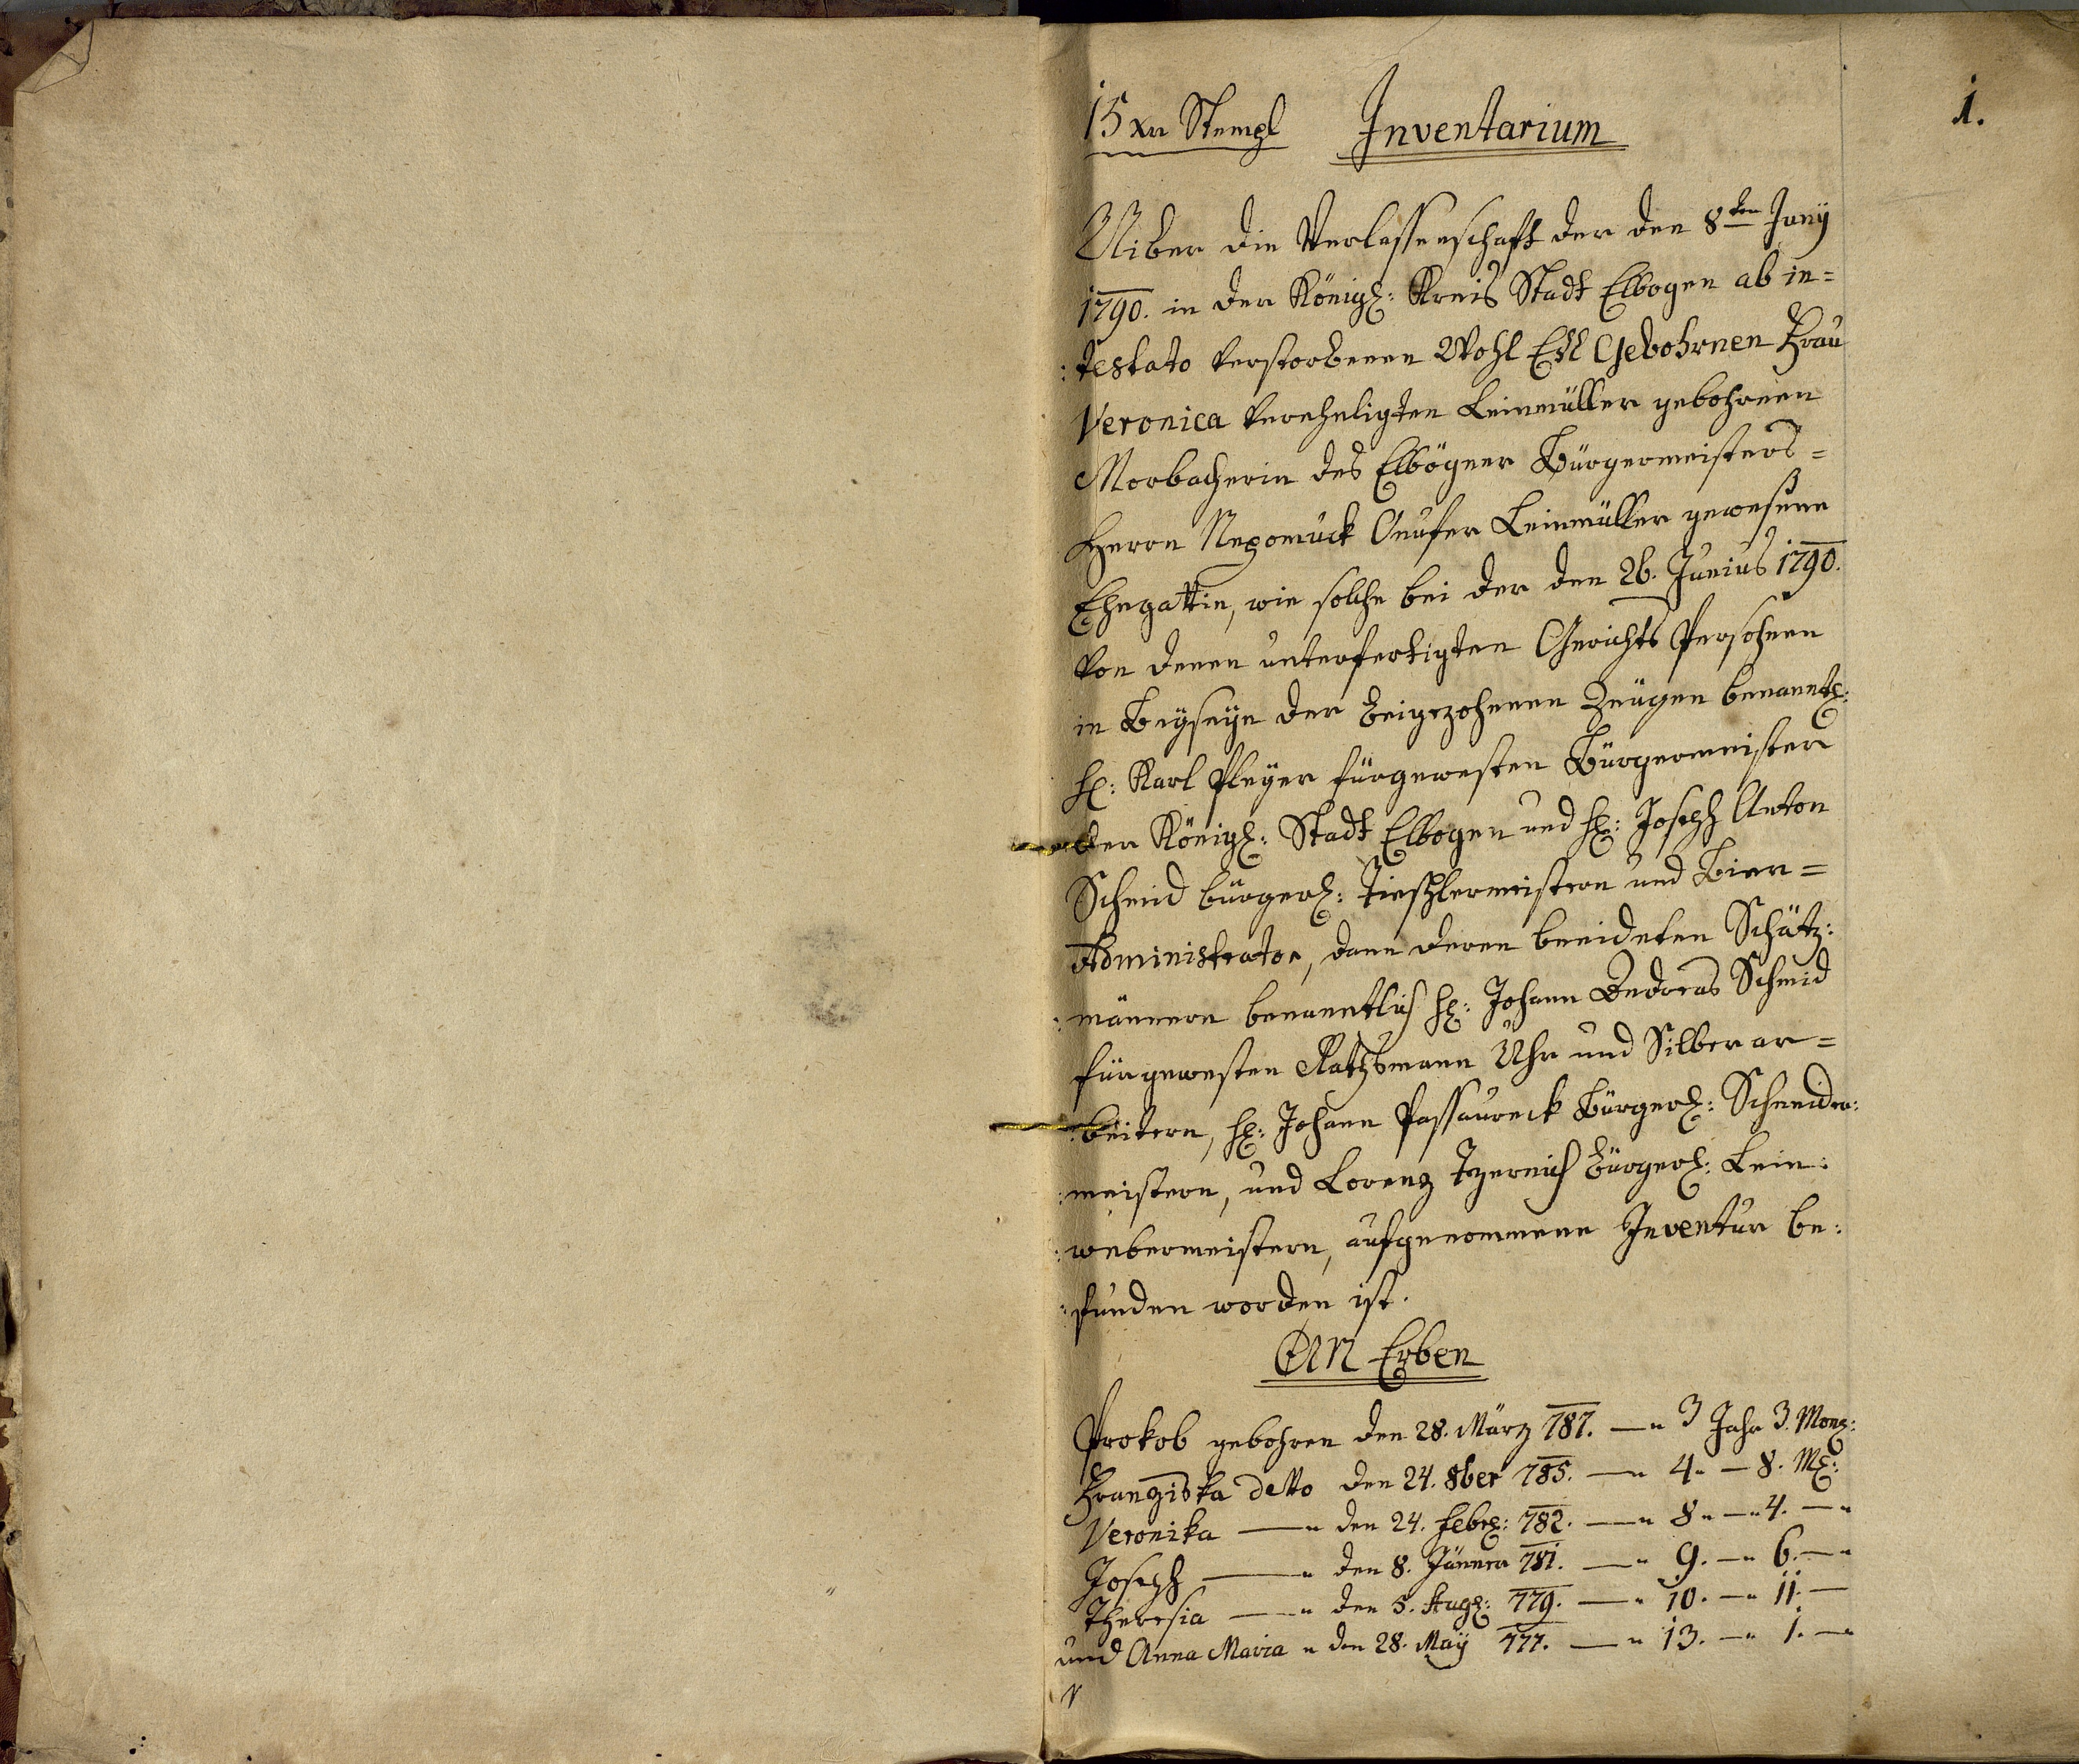 15 xr Stempl Inventarium
1.
Uiber die Verlassenschaft der den 8ten Juny
1790. in der Königl: Kreis Stadt Elbogen ab in=
:testato verstorbenen Wohl Edl Gebohrnen Frau
Veronica vereheligten Leinmüller gebohrnen
Morbacherin des Elbögner Bürgermeisters=
Herrn Nepomuck Leinmüller gewesene
Ehegattin, wie solche bei der den 26. Junius 1790.
von denen unterfertigten Gerichts Persohnen
in Beyseyn der beigezohenen Zeügen benanntl:
H: Karl Pleyer fürgewesten Bürgermeister
der Königl: Stadt Elbogen und H: Joseph Anton
Schmid bürgerl: Tischlermeistern und Bier=
Administrator, dann deren beeideten Schätz:
:männern benanntlich H: Johann Andreas Schmid
fürgewesten Rathsmann Uhr und Silber ar=
:beitern, H: Johann Passaureck bürgerl: Schneider:
:meistern, und Lorenz Tzernich bürgerl: Lein:
:webermeistern, aufgenommene Inventur be:
:funden worden ist.
An Erben
Prokob gebohren den 28. März 787. —" 3 Jahr 3. Mon:
Franziska detto den 24. 8ber 785. —" 4. — 8. M:
Veronika —" den 24. Febr: 782. —" 8" —" 4. —"
Joseph —" den 8. Jänner 781. —" 9. —" 6. —"
Theresia —" den 5. Aug: 779. —" 10. —" 11. —
und Anna Maria " den 28. May 777. —" 13. —" 1. —"